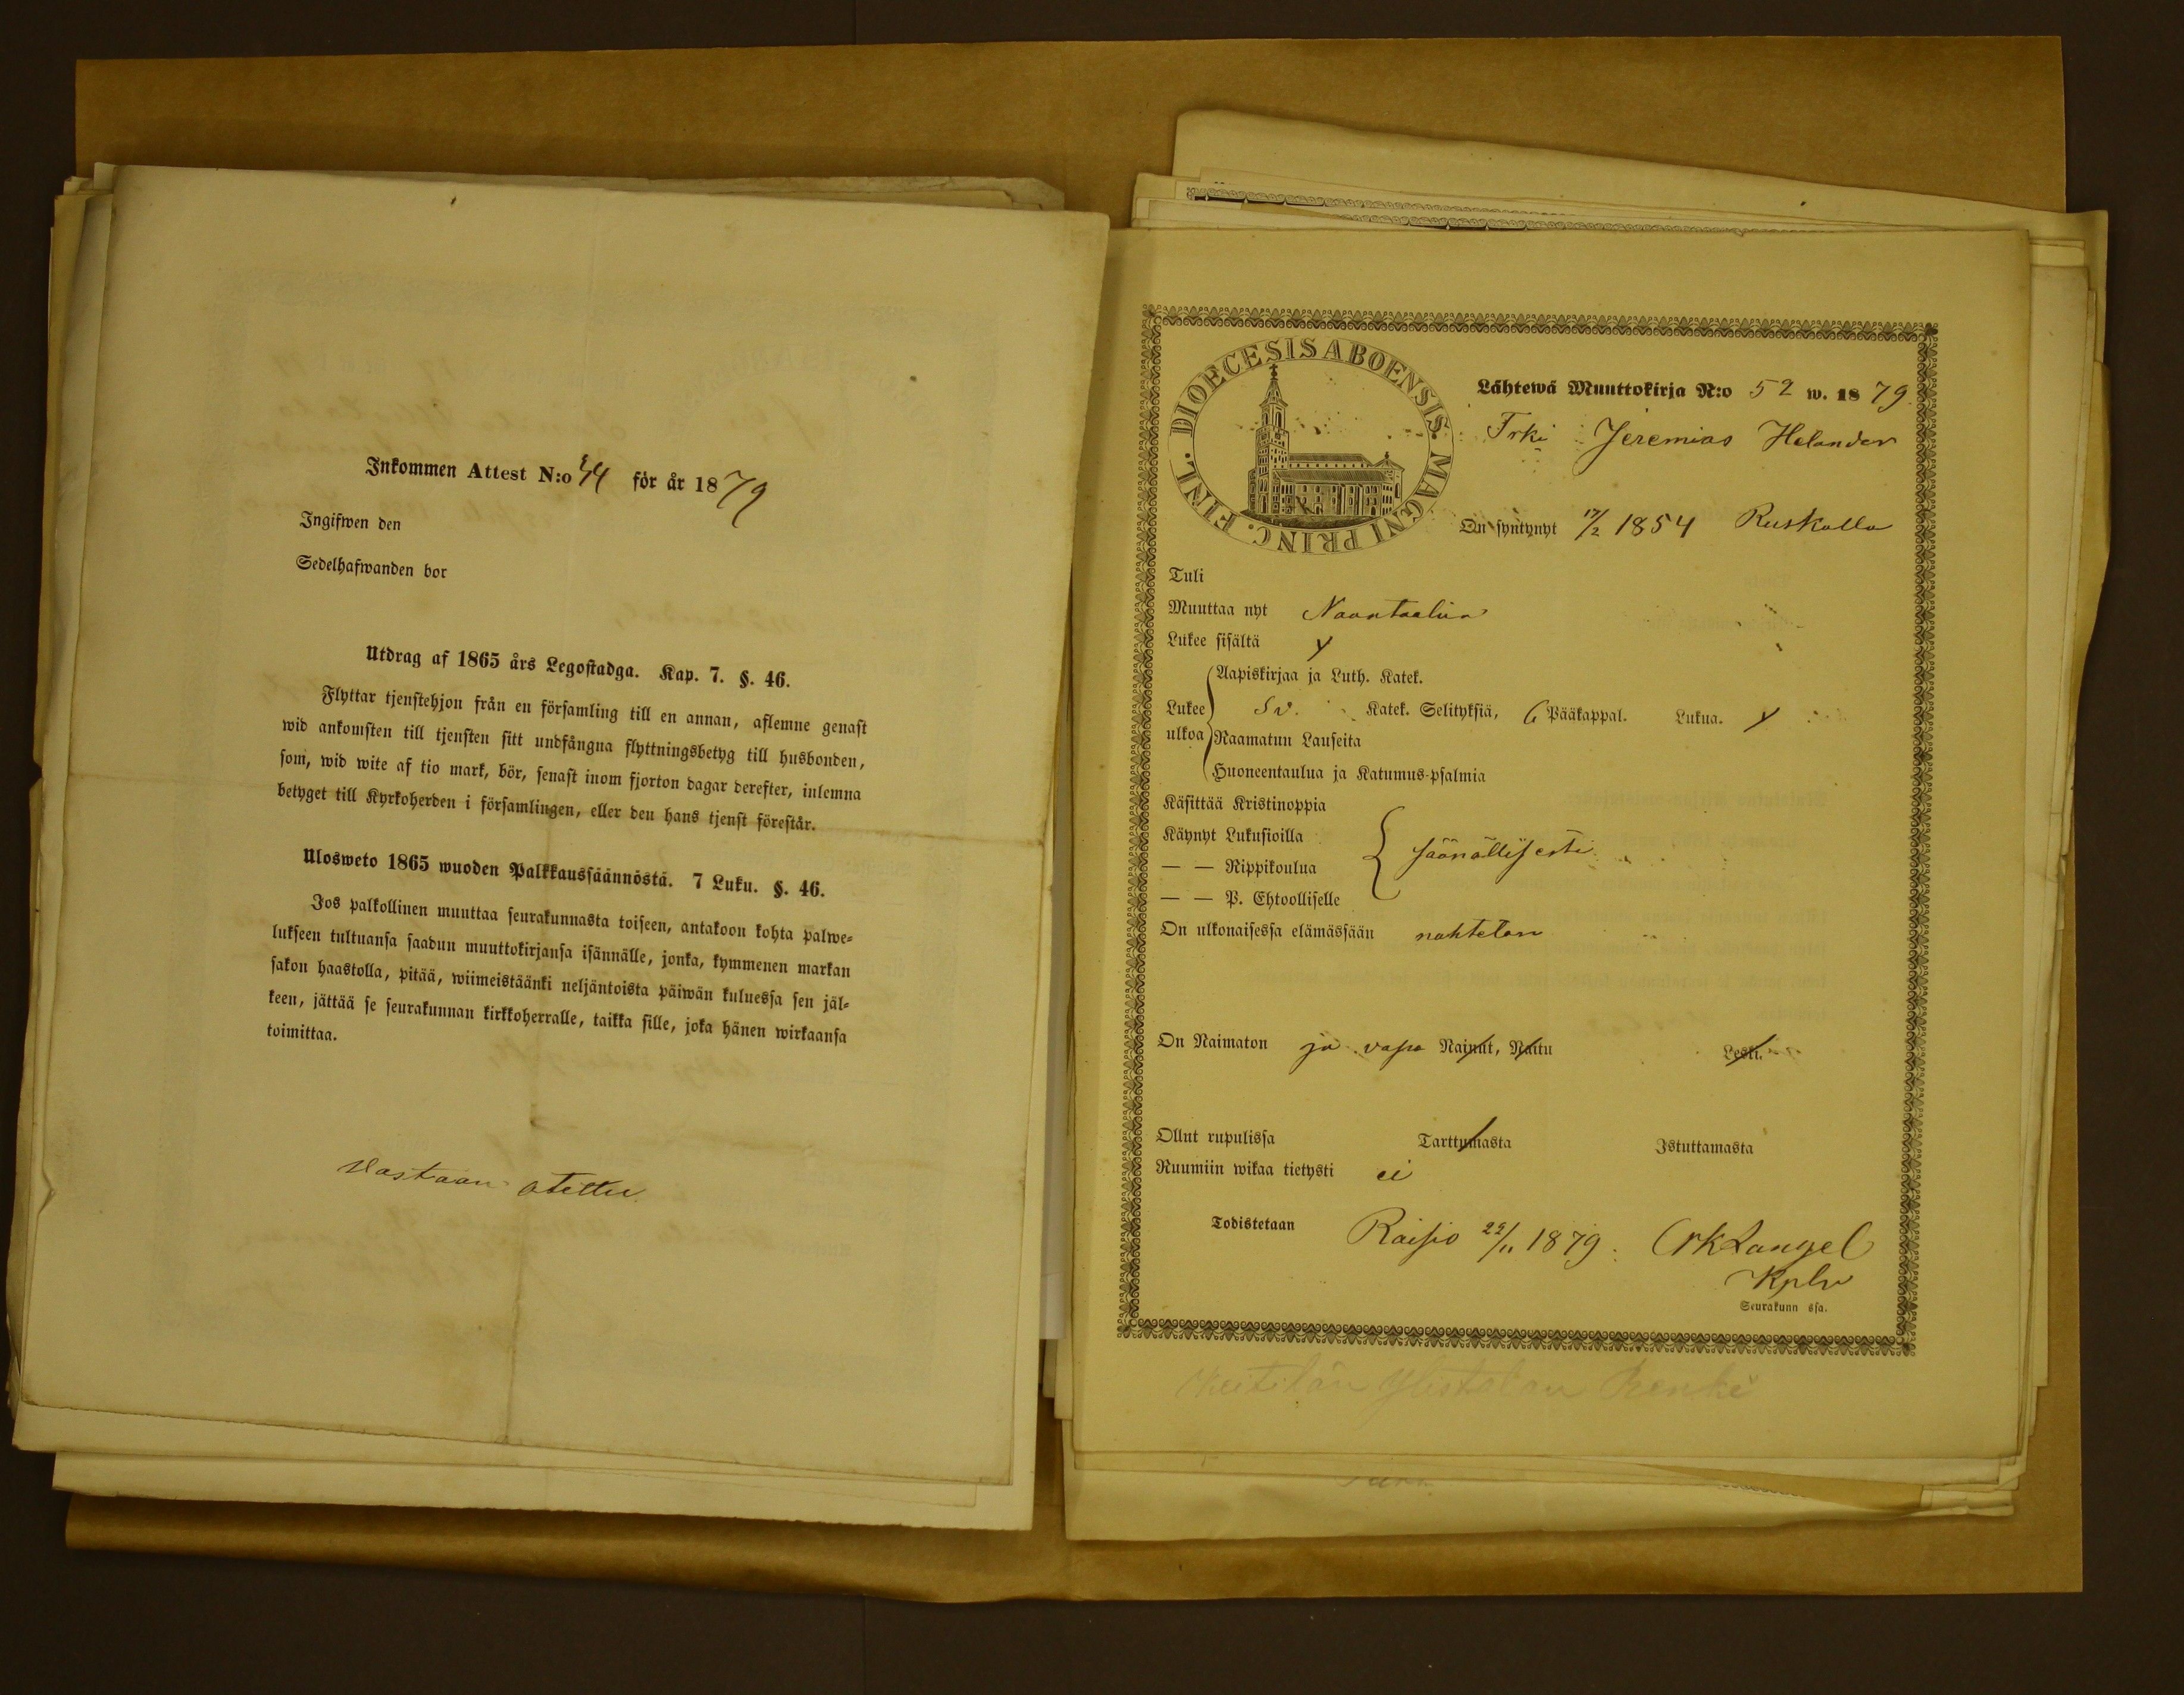 Inkommen Attest N:o 44 för år 1879
Ingifwen den
Sedelhafwanden bor
Utdrag af 1865 års Legostadga. Kap. 7. §. 46.
Flyttar tjenstehjon från en församling till en annan, aflemne genast
wid ankomsten till tjensten sitt undfångna flyttningsbetyg till husbonden,
som, wid wite af tio mark, bör, senast inom fjorton dagar derefter, inlemna
betyget till Kyrkoherden i församlingen, eller den hans tjenst förestår.
Ulosweto 1865 wuoden Palkkaussäännöstä. 7 Luku. §. 46.
Jos palkollinen muuttaa seurakunnasta toiseen, antakoon kohta palwe-
lukseen tultuansa saadun muuttokirjansa isännälle, jonka, kymmenen markan
sakon haastolla, pitää, wiimeistäänki neljäntoista päiwän kuluessa sen jäl-
keen, jättää se seurakunnan kirkkoherralle, taikka sille, joka hänen wirkaansa
toimittaa.
Vastaan otettu
DIOECESIS ABOENSIS. MAGNI PRINC. FINL.
Lähtewä Muuttokirja N:o 52 w. 1879
Trki Jeremias Helander
On syntynyt 17/2 1854 Ruskolla
Tuli
Muuttaa nyt Naantaaliin
Lukee sisältä y
Aapiskirjaa ja Luth. Katek.
Lukee Sv. Katek. Selityksiä, 6 Pääkappal. Lukua. y
ulkoa Raamatun Lauseita
Huoneentaulua ja Katumus-psalmia
Käsittää Kristinoppia
Käynyt Lukusioilla säänöllisesti
— — Rippikoulua
— — P. Ehtoolliselle
On ulkonaisessa elämässään nuhteton
On Naimaton ja vapa Nainut, Naitu Leski.
Ollut rupulissa Tarttumasta Istuttamasta
Ruumiin wikaa tietysti ei
Todistetaan Raisio 29/11 1879. Langel
Kpln
Seurakunn ssa.
Ylistalon Renki